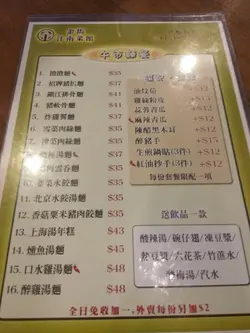 江南菜館
午市麵餐
1. 擔擔麵 $35
2. 招牌豬扒麵 $35
3. 鎮江排骨麵 $35
4. 豬軟骨麵 $35
5. 炸雞翼麵 $35
6. 雪菜肉絲麵 $35
7. 榨菜肉絲麵 $35
$35
肉雲吞麵 $35
菜水餃麵 $35
11. 北京水餃湯麵 $50
12. 香菇粟米豬肉餃麵
13. 上海湯年糕 $43
14. 燻魚湯麵 $45
15. 口水雞湯麵 $48
16. 醉雞湯麵 $48
油炆筍 +$12
雞絲粉皮 +$12
蒜蓉青瓜 +$12
麻辣青瓜 +$12
陳醋黑木耳 +$12
醉豬手 +$12
生煎鍋貼(3件) +$12
紅油抄手(3件) +$12
每份套餐限配一項
送飲品一款
酸辣湯/碗仔翅/凍豆漿/
熱豆漿/六花茶/竹蔗水/
酸梅湯/汽水
全日免收加一,外賣每份另加$2